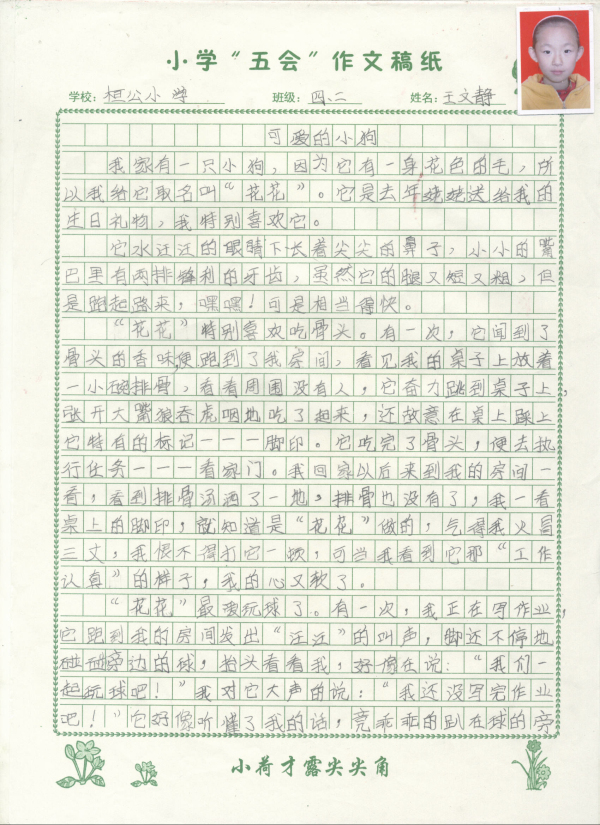 小学“五会”作文稿纸
学校：桓公小学 班级：四.二 姓名：王文静
可爱的小狗
我家有一只小狗，因为它有一身花色的毛，所
以我给它取名叫“花花”。它是去年姥姥送给我的
生日礼物，我特别喜欢它。
它水汪汪的眼睛下长着尖尖的鼻子，小小的嘴
巴里有两排犀利的牙齿，虽然它的腿又短又粗，但
是跑起路来，嘿嘿！可是相当得快。
“花花”特别喜欢吃骨头。有一次，它闻到了
骨头的香味，便跑到了我房间，看见我的桌子上放着
一小碗排骨，看看周围没有人，它奋力跳到桌子上，
张开大嘴狼吞虎咽地吃了起来，还故意在桌上踩上
它特有的标记———脚印。它吃完了骨头，便去执
行任务———看家门。我回家以后来到我的房间一
看，看到排骨汤洒了一地，排骨也没有了，我一看
桌上的脚印，就知道是“花花”做的，气得我火冒
三丈，我恨不得打它一顿，可当我看到它那“工作
认真”的样子，我的心又软了。
“花花”最爱玩球了。有一次，我正在写作业，
它跑到我的房间发出“汪汪”的叫声，脚还不停地
碰旁边的球，抬头看看我，好像在说：“我们一
起玩球吧！”我对它大声的说：“我还没写完作业
吧！”它好像听懂了我的话，竟乖乖的趴在球的旁
小荷才露尖尖角